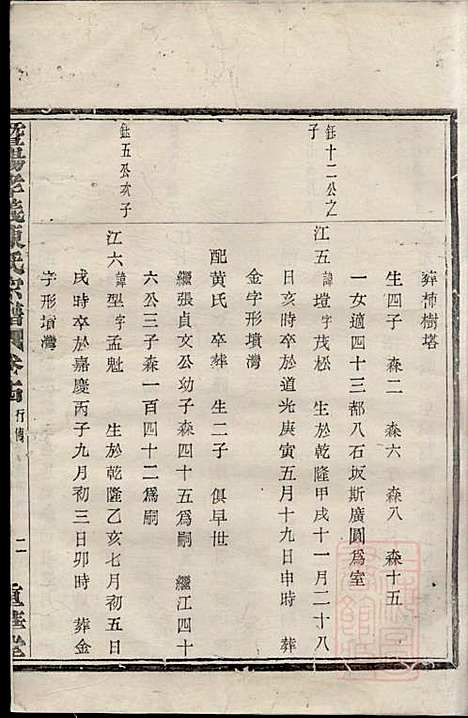 葬柿樹塔
生四子 森二 森六 森八 森十五
一女適四十三都八石坂斯廣圓爲室
鈺十二公之子
江五 諱塏字茂松 生於乾隆甲戌十一月二十八
日亥時卒於道光庚寅五月十九日申時 葬
金字形墳灣
配黄氏 卒葬 生二子 俱早世
繼張貞文公幼子森四十五爲嗣 繼江四十
六公三子森一百四十二爲嗣
鈺五公次子
江六 諱型字孟魁 生於乾隆乙亥七月初五日
戌時卒於嘉慶丙子九月初三日卯時 葬金
字形墳灣
暨陽孝義陳氏宗譜 行傳 二